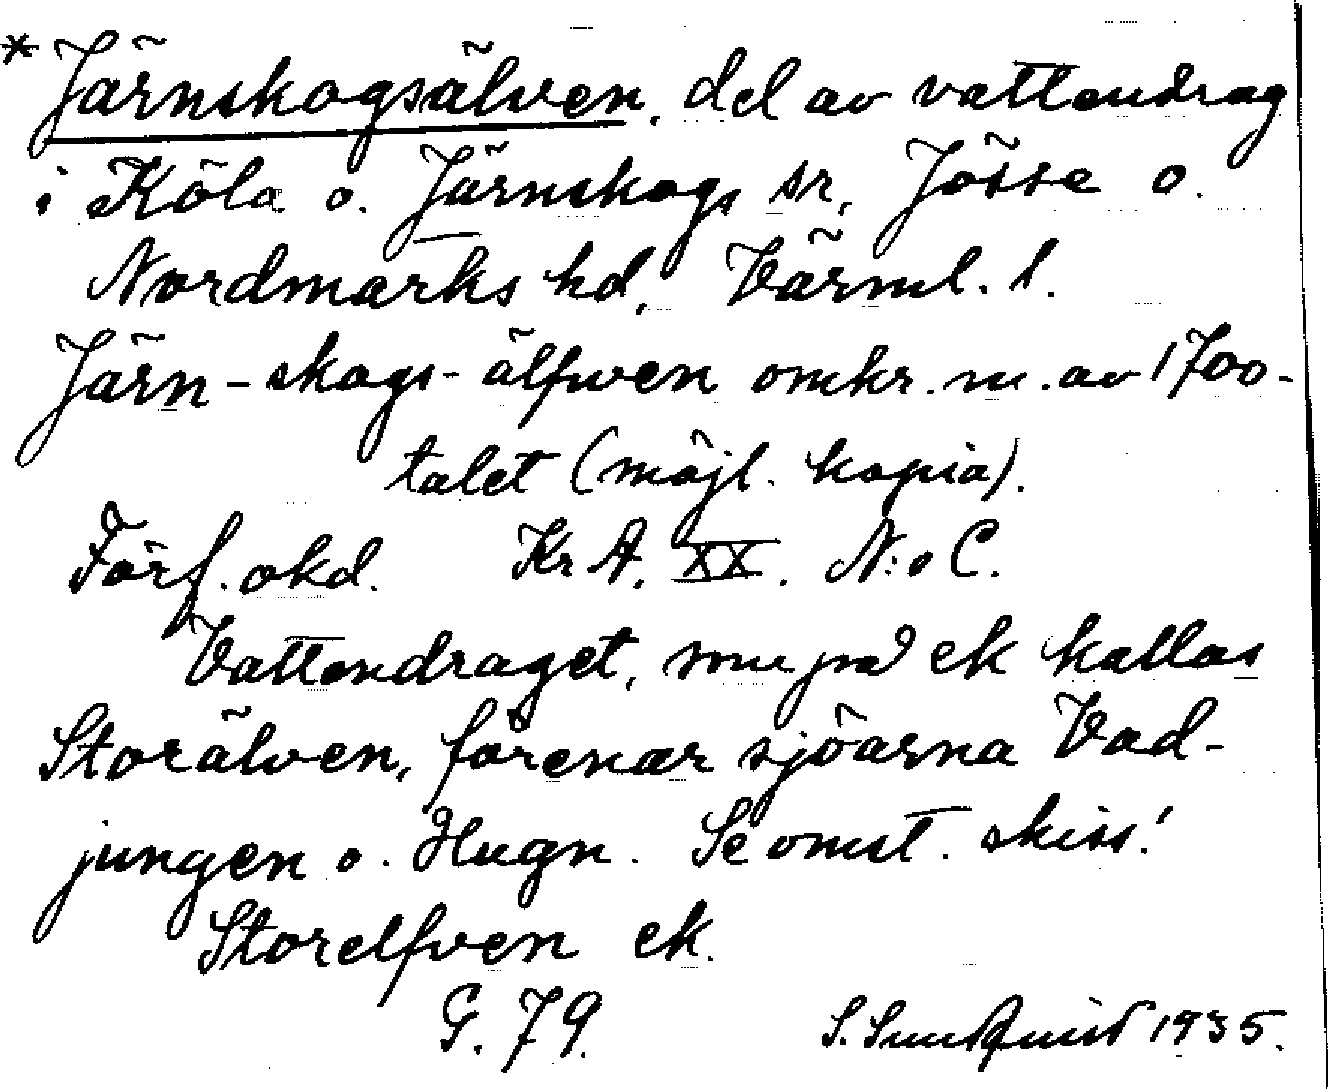 * Järnskogsälven, del av vattendrag
i Köla o. Järnskogs sr, Jösse o.
Nordmarks hd, Värml. l.
Järn-skogs-älfwen omkr. m. av 1700-
talet (möjl. kopia).
Förf. okd. Kr A. XX. N:o C.
Vattendraget, som på ek kallas
Storälven, förenar sjöarna Vad-
jungen o. Hugn. Se omst. skiss!
Storelfven ek.
G. 79. S. Sundquist 1935.